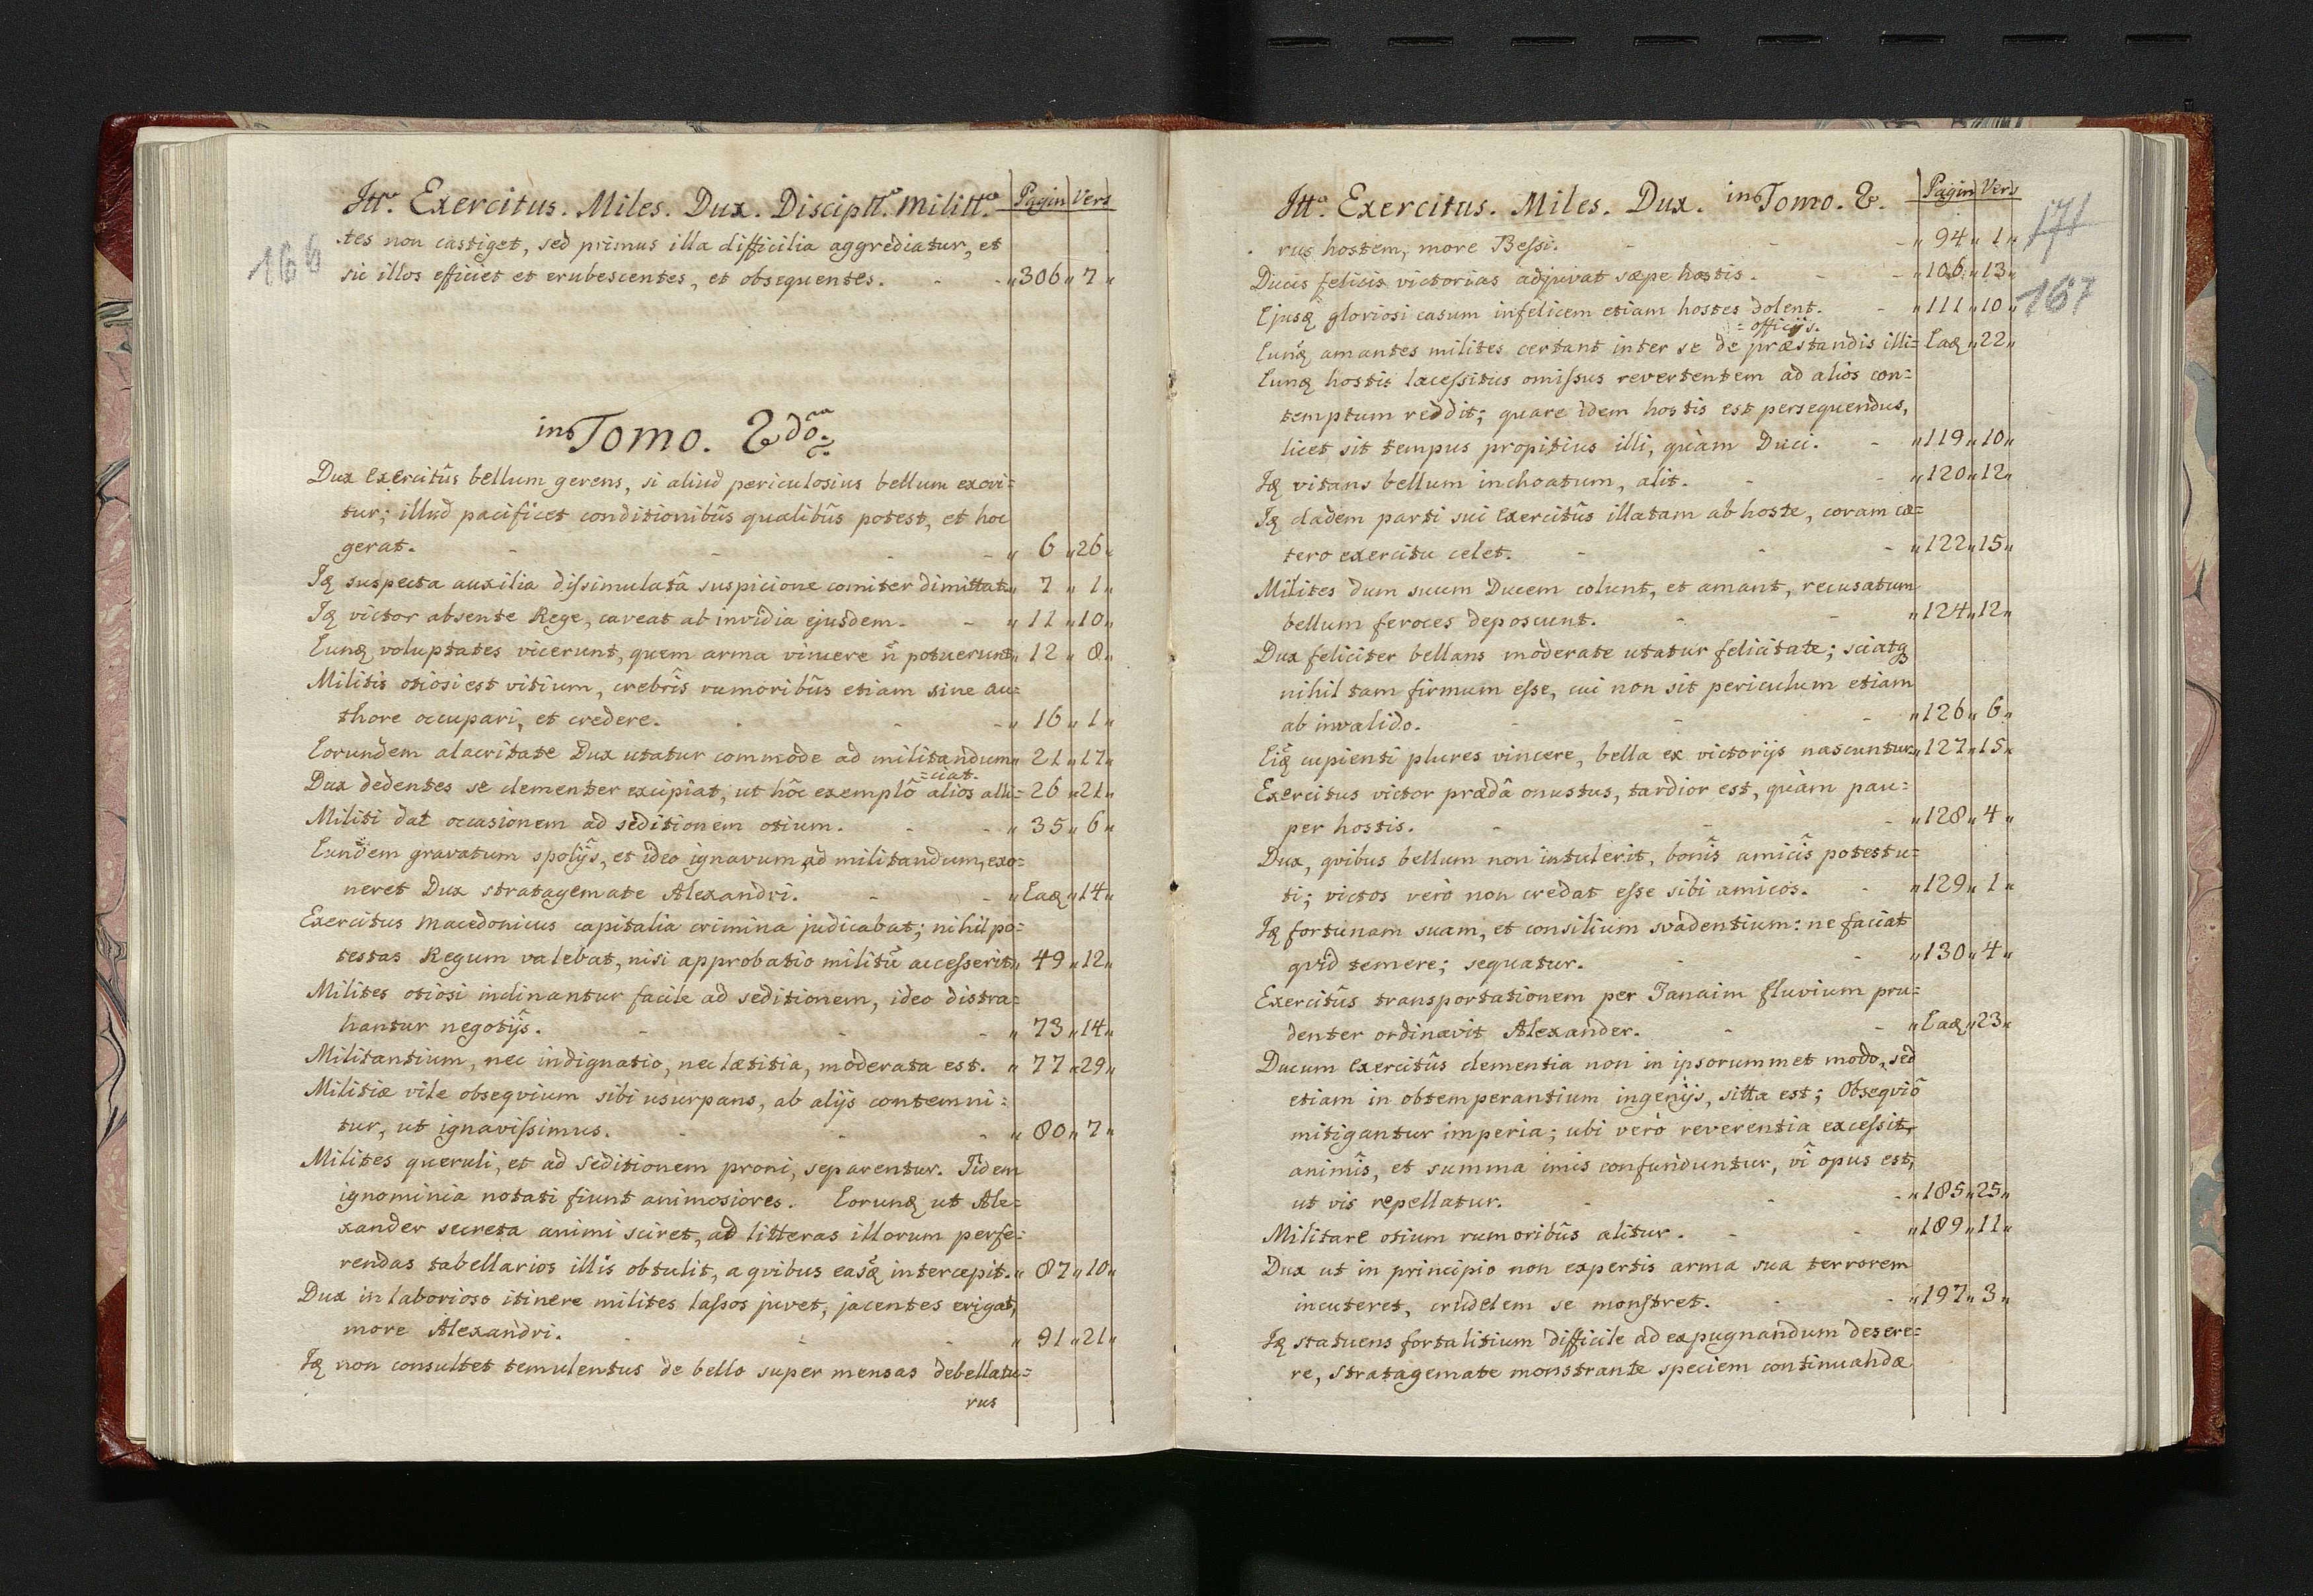 Ittô. Exercitus. Miles. Dux. Disciptt.ô militt.ô Pagin Vers
166
tes non castiget, sed primus illa difficilia aggrediatur, et
sic illos efficiet et erubescentes, et obsequentes. - - „306„7„
in Tomo. 2do.
Dux Exercitûs bellum gerens, si aliud periculosius bellum exori=
tur; illud pacificet conditionibûs qualibûs potest, et hoc
gerat. - - - - „6„26„
Iq suspecta auxilia dissimulatâ suspicione comiter dimittat. „7„1„
Iq victor absente Rege, caveat ab invidia ejusdem. - „11„10„
Eunq voluptates vicerunt, quem arma vincere ñ potuerunt. „12„8„
Militis otiosi est vitium, crebrîs rumoribûs etiam sine au=
thore occupari, et credere. - - - „16„1„
Eorundem alacritate Dux utatur commode ad militandum „21„17„
=ciat.
Dux dedentes se clementer excipiat, ut hôc exemplô alios alli= 26„21„
Militi dat occasionem ad seditionem otium. - - „35„6„
Eundem gravatum spolijs, et ideo ignavum ad militandum, exo=
neret Dux stratagemate Alexandri. - - „Eaq„14„
Exercitus Macedonicus capitalia crimina judicabat; nihil po=
testas Regum valebat, nisi approbatio militũ accesserit. „49„12„
Milites otiosi inclinantur facile ad seditionem, ideo distra=
hantur negotijs. - - - „73„14„
Militantium, nec indignatio, nec lætitia, moderata est. „77„29„
Militiæ vile obseqvium sibi usurpans, ab alijs contemni=
tur, ut ignavissimus. - - - „80„7„
Milites queruli, et ad seditionem proni, separentur. Iidem
ignominia notati fiunt animosiores. Eorunq ut Ale=
xander secreta animi sciret, ad litteras illorum perfe=
rendas tabellarios illis obtulit, a qvibus easq intercepit. „87„10„
Dux in laborioso itinere milites lassos juvet, jacentes erigat,
more Alexandri. - - - „91„21„
Iq non consultet temulentus de bello super mensas debellatu=
rus
Ittô. Exercitus. Miles. Dux. in Tomo. 2. Pagin Vers
171
rus hostem, more Bessi. - - - „94„1„
Ducis felicis victorias adjuvat sæpe hostis. - - „106„13„
167
Ejusq gloriosi casum infelicem etiam hostes dolent. - „111„10„
=officijs.
Eunq amantes milites certant inter se de præstandis illi= Eaq„22„
Eunq hostis lacessitus omissus revertentem ad alios con=
temptum reddit; quare idem hostis est persequendus,
licet sit tempus propitius illi, quàm Duci. - „119„10„
Iq vitans bellum inchoatum, alit. - - „120„12„
Iq cladem parti sui Exercitûs illatam ab hoste, coram cæ=
tero exercitu celet. - - - „122„15„
Milites dum suum Ducem colunt, et amant, recusatum
bellum feroces deposcunt. - - „124„12„
Dux feliciter bellans moderate utatur felicitate; sciatq
nihil tam firmum esse, cui non sit periculum etiam
ab invalido. - - - „126„6„
Eiq cupienti plures vincere, bella ex victorijs nascuntur. „127„15„
Exercitus victor prædâ onustus, tardior est, quàm pau=
per hostis. - - - „128„4„
Dux, qvibus bellum non intulerit, bonîs amicîs potest u=
ti; victos verò non credat esse sibi amicos. - „129„1„
Iq fortunam suam, et consilium svadentium: ne faciat
qvid temere; sequatur. - - „130„4„
Exercitûs transportationem per Tanaim fluvium pru=
denter ordinavit Alexander. - - „Eaq„23„
Ducum Exercitûs clementia non in ipsorummet modo, sed
etiam in obtemperantium ingenijs, sitta est; Obseqviô
mitigantur imperia; ubi verò reverentia excessit,
animîs, et summa imis confunduntur, vî opus est,
ut vis repellatur. - - - „185„25„
Militare otium rumoribûs alitur. - - „189„11„
Dux ut in principio non expertis arma sua terrorem
incuteret, crudelem se monstret. - - „197„3„
Iq statuens fortalitium difficile ad expugnandum desere=
re, stratagemate monstrante speciem continuandæ